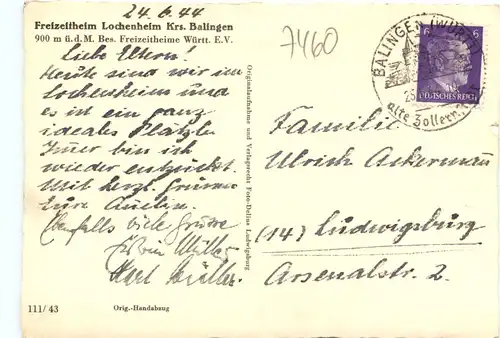 24.6.44
Freizeitheim Lochenheim Krs. Balingen
900 m ü.d.M. Bes. Freizeitheime Württ. E.V.
Liebe Eltern!
Heute sind wir im
Lochenheim und
es ist ein ganz
ideales Plätzle
Immer bin ich
wieder entzückt.
Mit herzl. Grüssen
Eure
Ebenfalls viele Grüsse
Müller
Karl Müller
111/43
Orig.-Handabzug
Originalaufnahme und Verlagsrecht Foto-Delius Ludwigsburg
7460
BALINGEN (WÜRTT
6 6
DEUTSCHES REICH
alte Zollern
Familie
Ulrich Ackermann
(14) Ludwigsburg
Arsenalstr. 2.